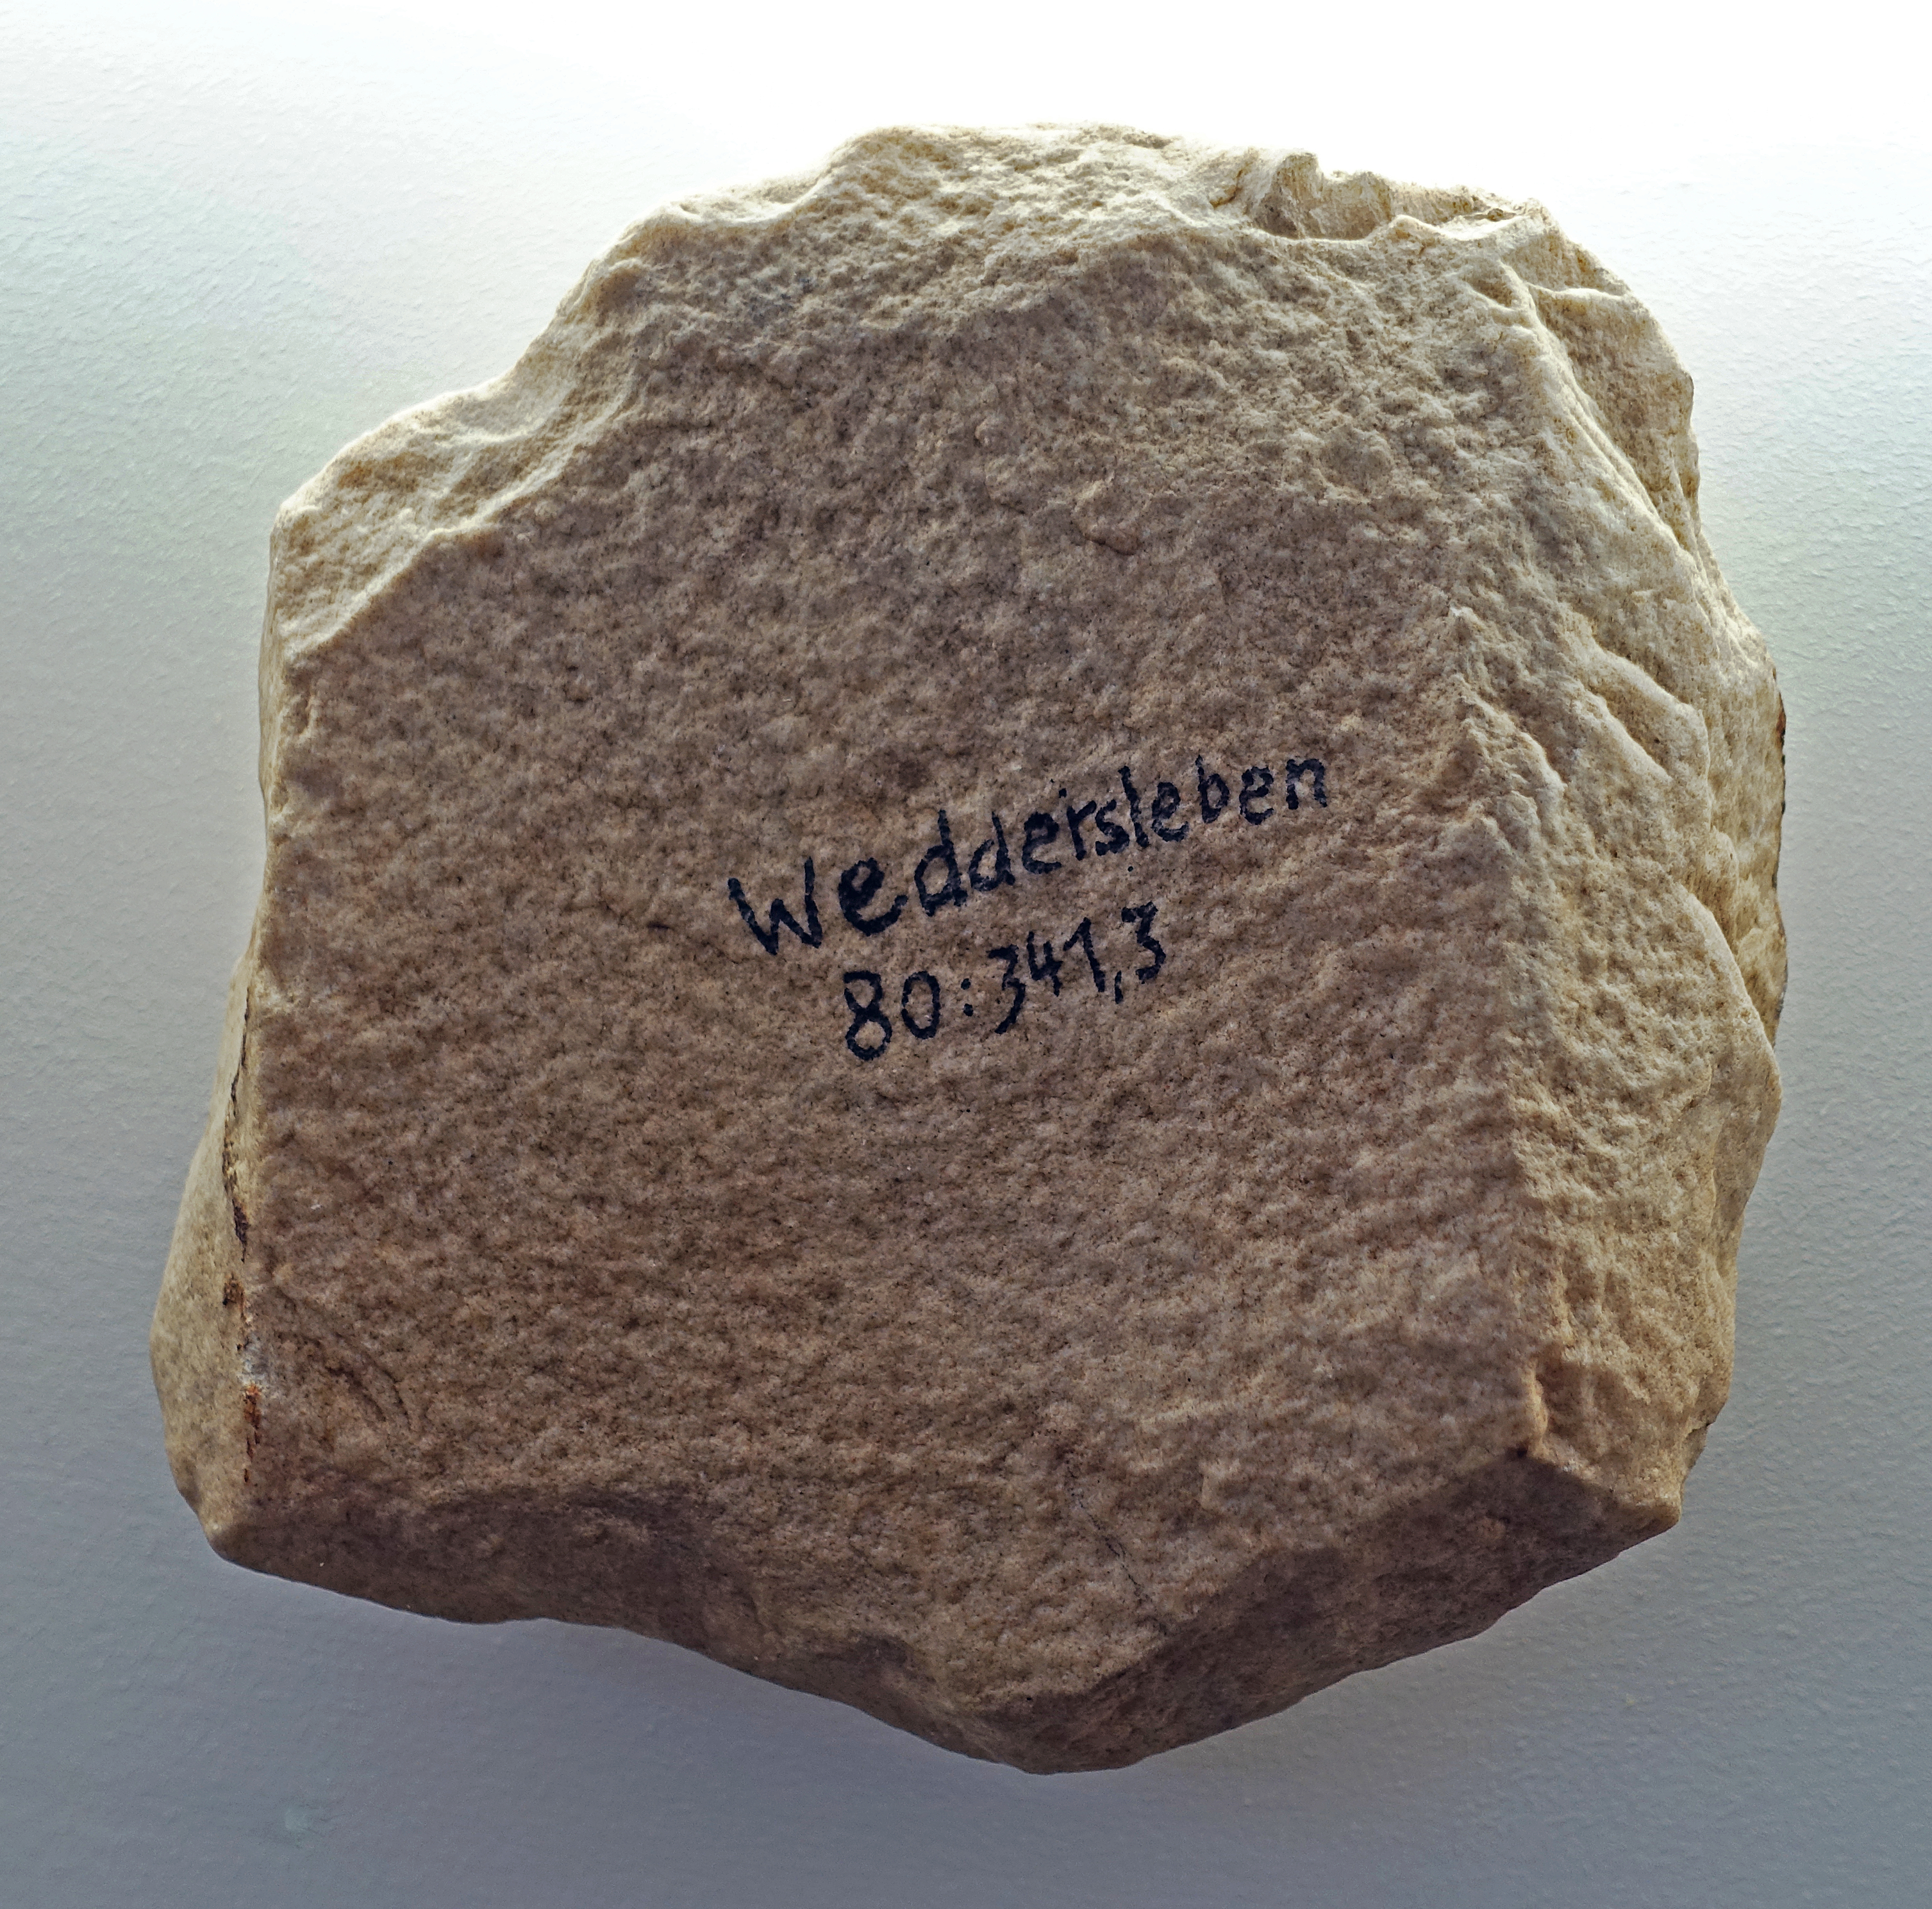 Weddersleben
80:341,3